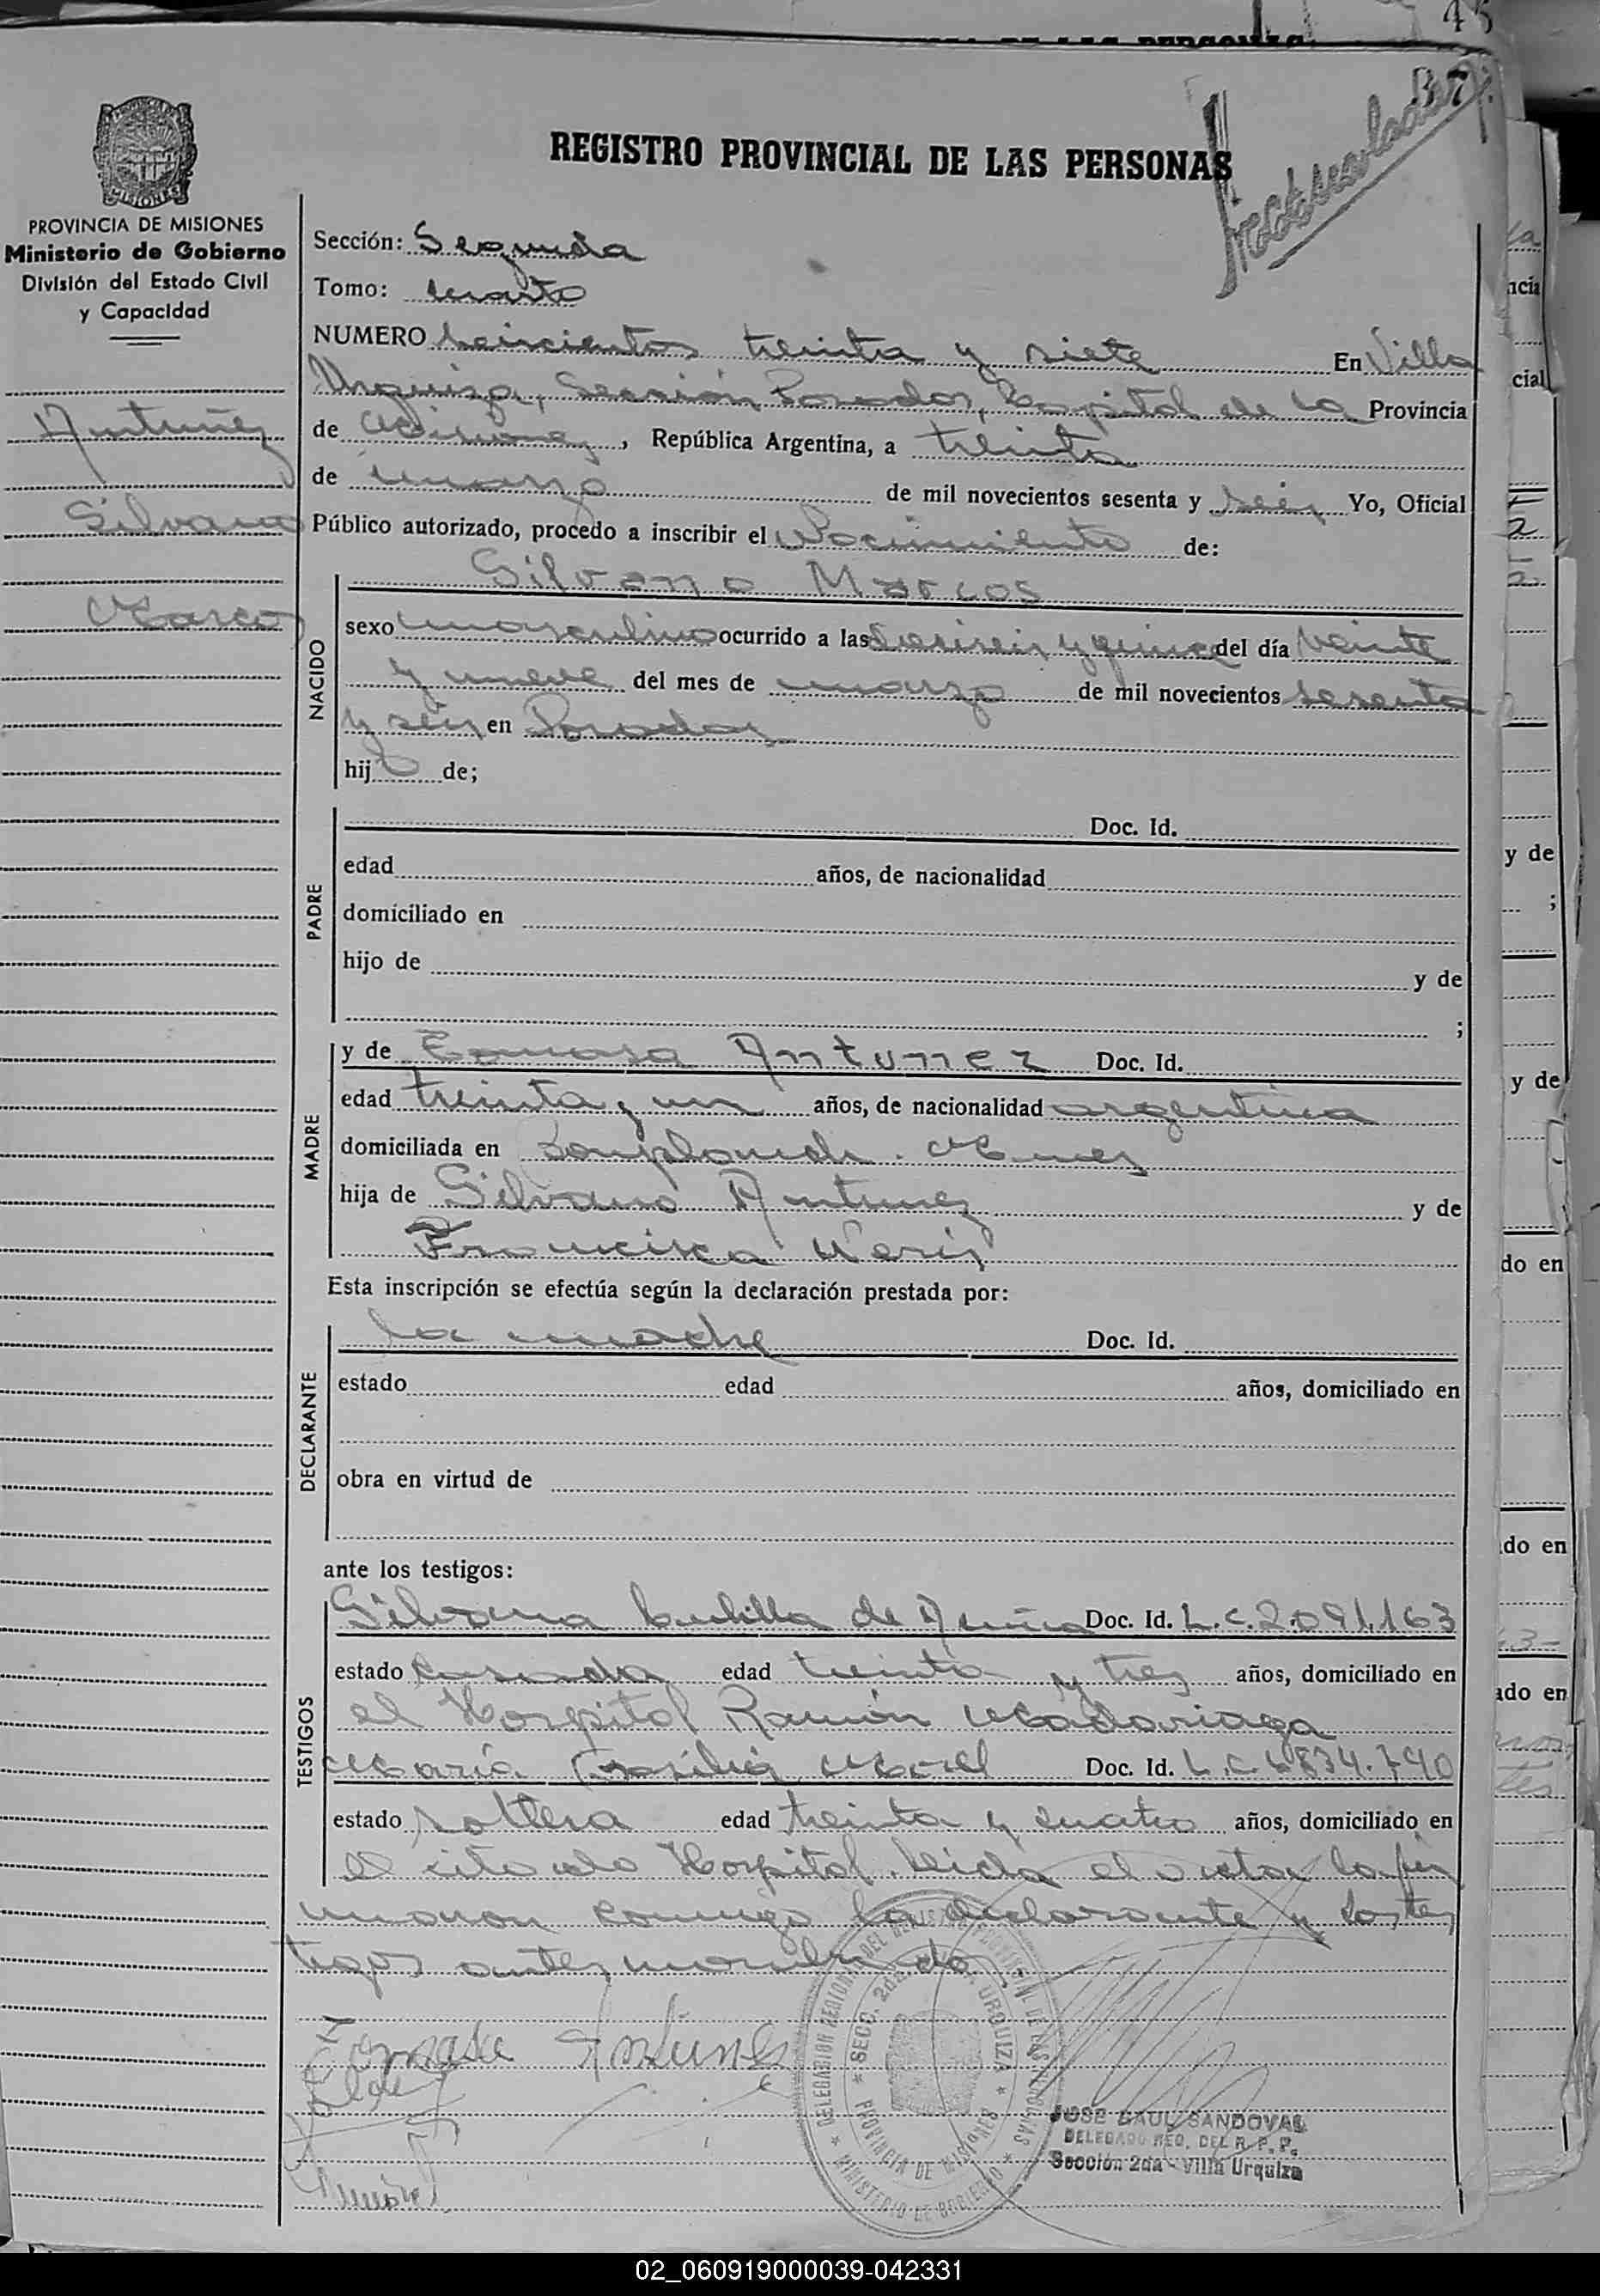 45
37
Inmatriculado
REGISTRO PROVINCIAL DE LAS PERSONAS
PROVINCIA DE MISIONES
Ministerio de Gobierno
División del Estado Civil
y Capacidad
Antuñez
Silvano
Marcos
Sección: Segunda
Tomo: cuarto
NUMERO Seiscientos treinta y siete En Villa
Urquiza, Sección Posadas, Capital de la Provincia
de Misiones, República Argentina, a treinta
de marzo de mil novecientos sesenta y seis Yo, Oficial
Público autorizado, procedo a inscribir el Nacimiento de:
Silvano Marcos
NACIDO
sexo masculino ocurrido a las dieciseis y quince del día veinte
y nueve del mes de marzo de mil novecientos sesenta
y seis en Posadas
hijo de;
PADRE
Doc. Id.
edad años, de nacionalidad
domiciliado en
hijo de y de
;
MADRE
y de Tomasa Antunez Doc. Id.
edad treinta y un años, de nacionalidad argentina
domiciliada en Bonpland. Mnes
hija de Silvano Antunez y de
Francisca Neris
Esta inscripción se efectúa según la declaración prestada por:
DECLARANTE
la madre Doc. Id.
estado edad años, domiciliado en
obra en virtud de
ante los testigos:
TESTIGOS
Silvana de Doc. Id. L.C.2.091.163
estado casada edad treinta y tres años, domiciliado en
el Hospital Ramón Madariaga
María Doc. Id. L.C.
estado soltera edad treinta y cuatro años, domiciliado en
el citado Hospital. Leida el acta la fir
maron conmigo la declarante y los tes
tigos antes nombrados.
Tomasa Antunes
DELEGACION REGIONAL DEL REGISTRO PROVINCIAL DE LAS PERSONAS
MINISTERIO DE GOBIERNO
SECC. 2da. URQUIZA
PROVINCIA DE MISIONES
JOSE SAUL SANDOVAL
DELEGADO REG. DEL R. P. P.
Sección 2da - Villa Urquiza
ncia
cial
y de
;
y de
do en
do en
ado en
02_060919000039-042331